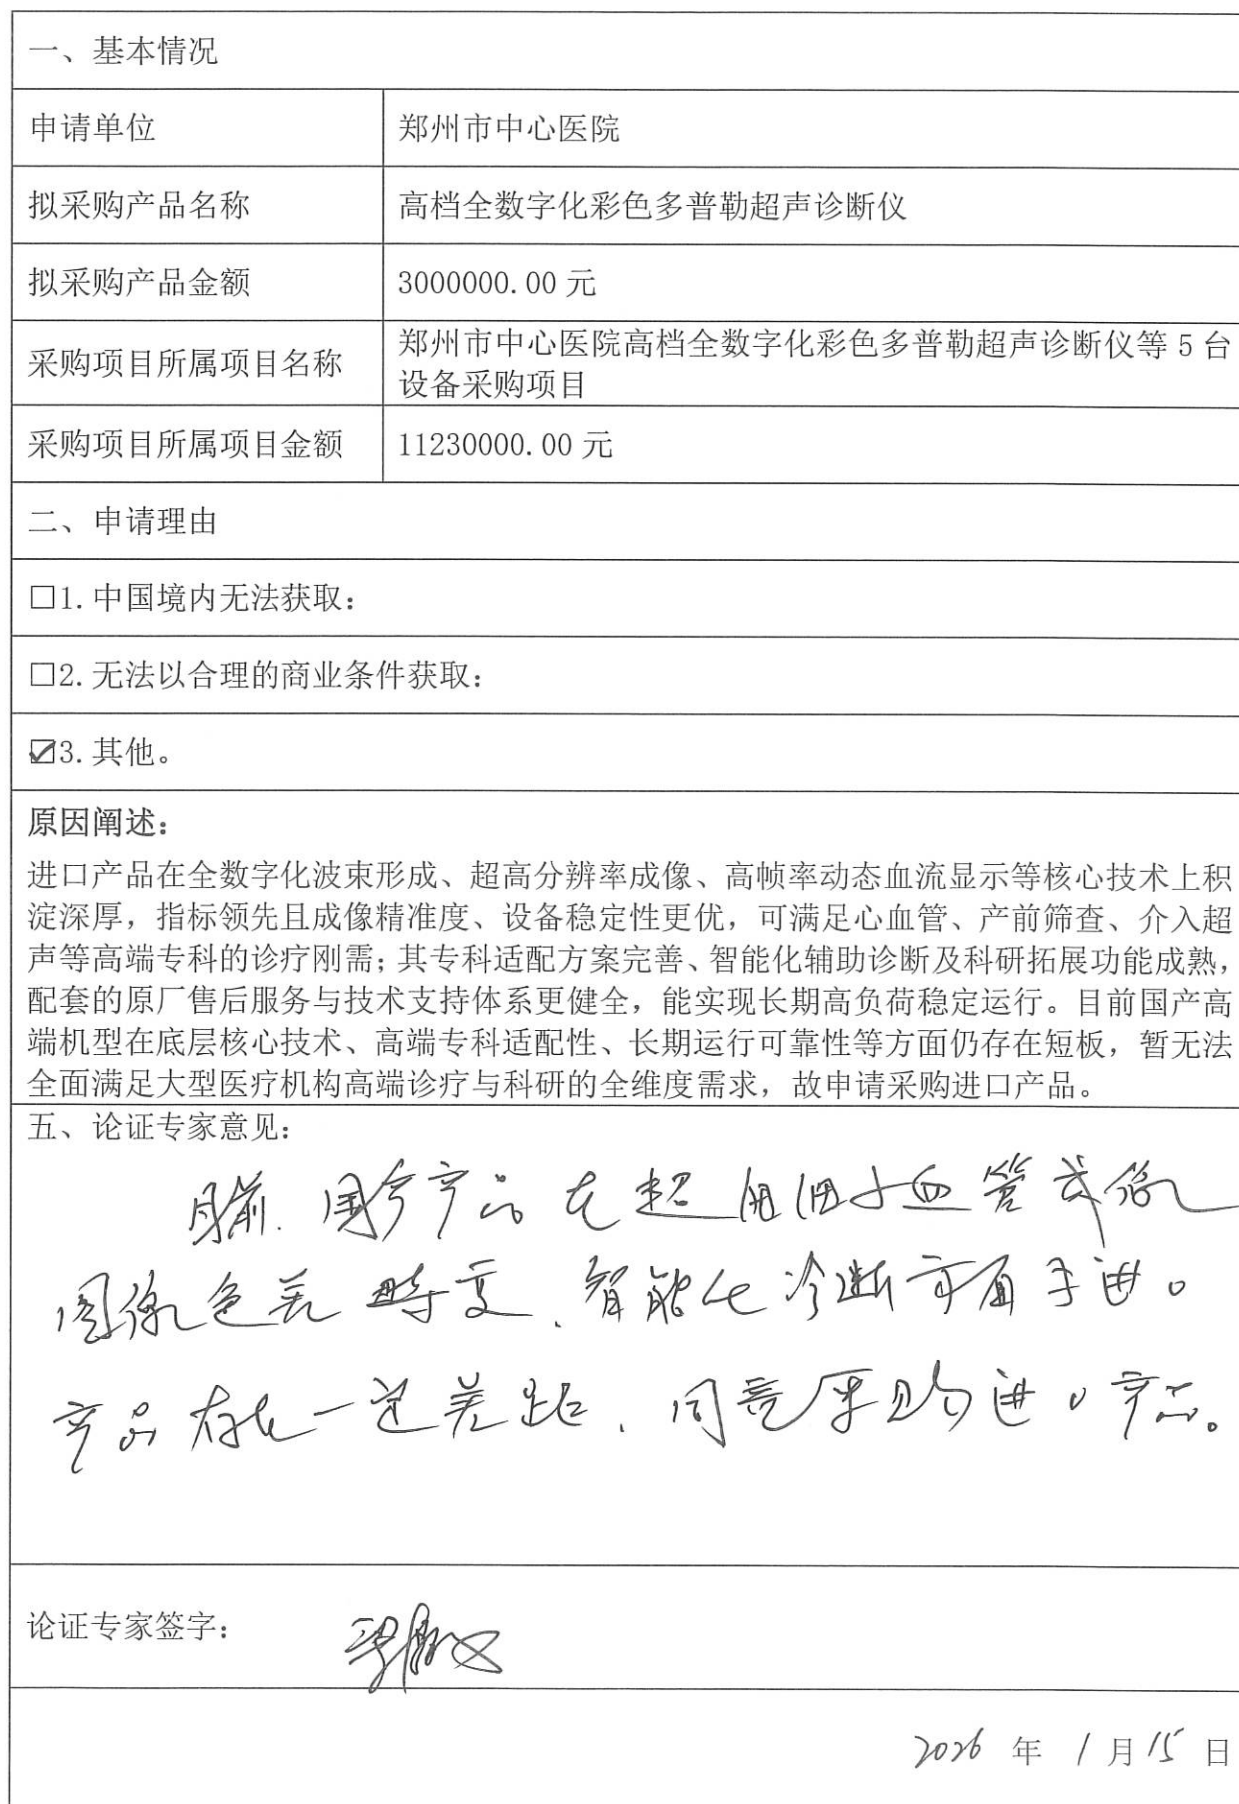 一、基本情况
申请单位 郑州市中心医院
拟采购产品名称 高档全数字化彩色多普勒超声诊断仪
拟采购产品金额 3000000.00 元
采购项目所属项目名称 郑州市中心医院高档全数字化彩色多普勒超声诊断仪等 5 台
设备采购项目
采购项目所属项目金额 11230000.00 元
二、申请理由
☐1. 中国境内无法获取：
☐2. 无法以合理的商业条件获取：
☑3. 其他。
原因阐述：
进口产品在全数字化波束形成、超高分辨率成像、高帧率动态血流显示等核心技术上积
淀深厚，指标领先且成像精准度、设备稳定性更优，可满足心血管、产前筛查、介入超
声等高端专科的诊疗刚需；其专科适配方案完善、智能化辅助诊断及科研拓展功能成熟，
配套的原厂售后服务与技术支持体系更健全，能实现长期高负荷稳定运行。目前国产高
端机型在底层核心技术、高端专科适配性、长期运行可靠性等方面仍存在短板，暂无法
全面满足大型医疗机构高端诊疗与科研的全维度需求，故申请采购进口产品。
五、论证专家意见：
目前，国产产品在超细小血管成像
图像色差畸变、智能化诊断方面与进口
产品存在一定差距，同意采购进口产品。
论证专家签字：
2026 年 1 月 15 日